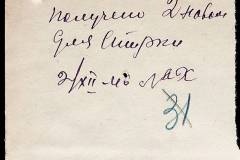 получено 2 новых
для стирки
2/XII-40 ЛАХ
31